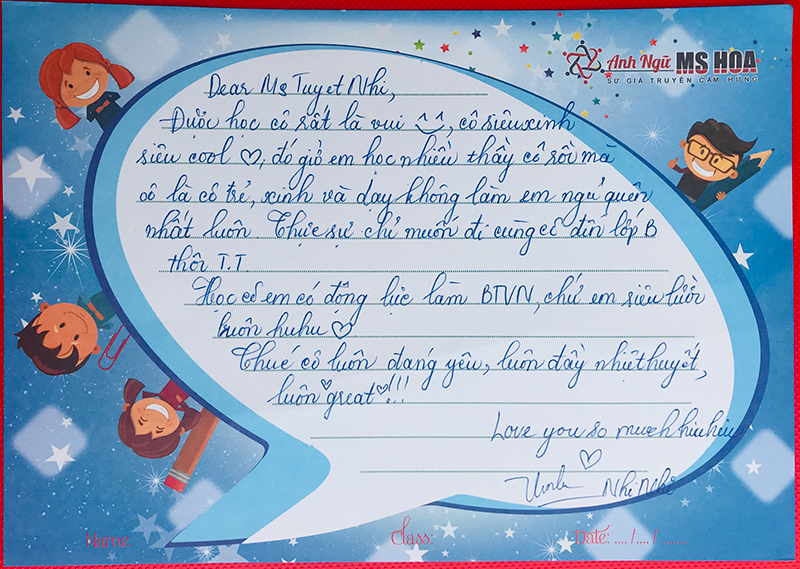 Anh Ngữ MS HOA
SỨ GIẢ TRUYỀN CẢM HỨNG
Dear Ms Tuyet Nhi,
Được học cô rất là vui ^^, cô siêu xinh
siêu cool ♡, đó giờ em học nhiều thầy cô rồi mà
cô là cô trẻ, xinh và dạy không làm em ngủ quên
nhất luôn. Thực sự chỉ muốn đi cùng cô đến lớp B
thôi T.T
Học cô em có động lực làm BTVN, chứ em siêu lười
luôn huhu ♡
Chúc cô luôn đáng yêu, luôn đầy nhiệt huyết,
luôn great !!!
Love you so much hiuhiu
♡
Nhi Nhi
Name:
Class:
Date: .... /.... / .......